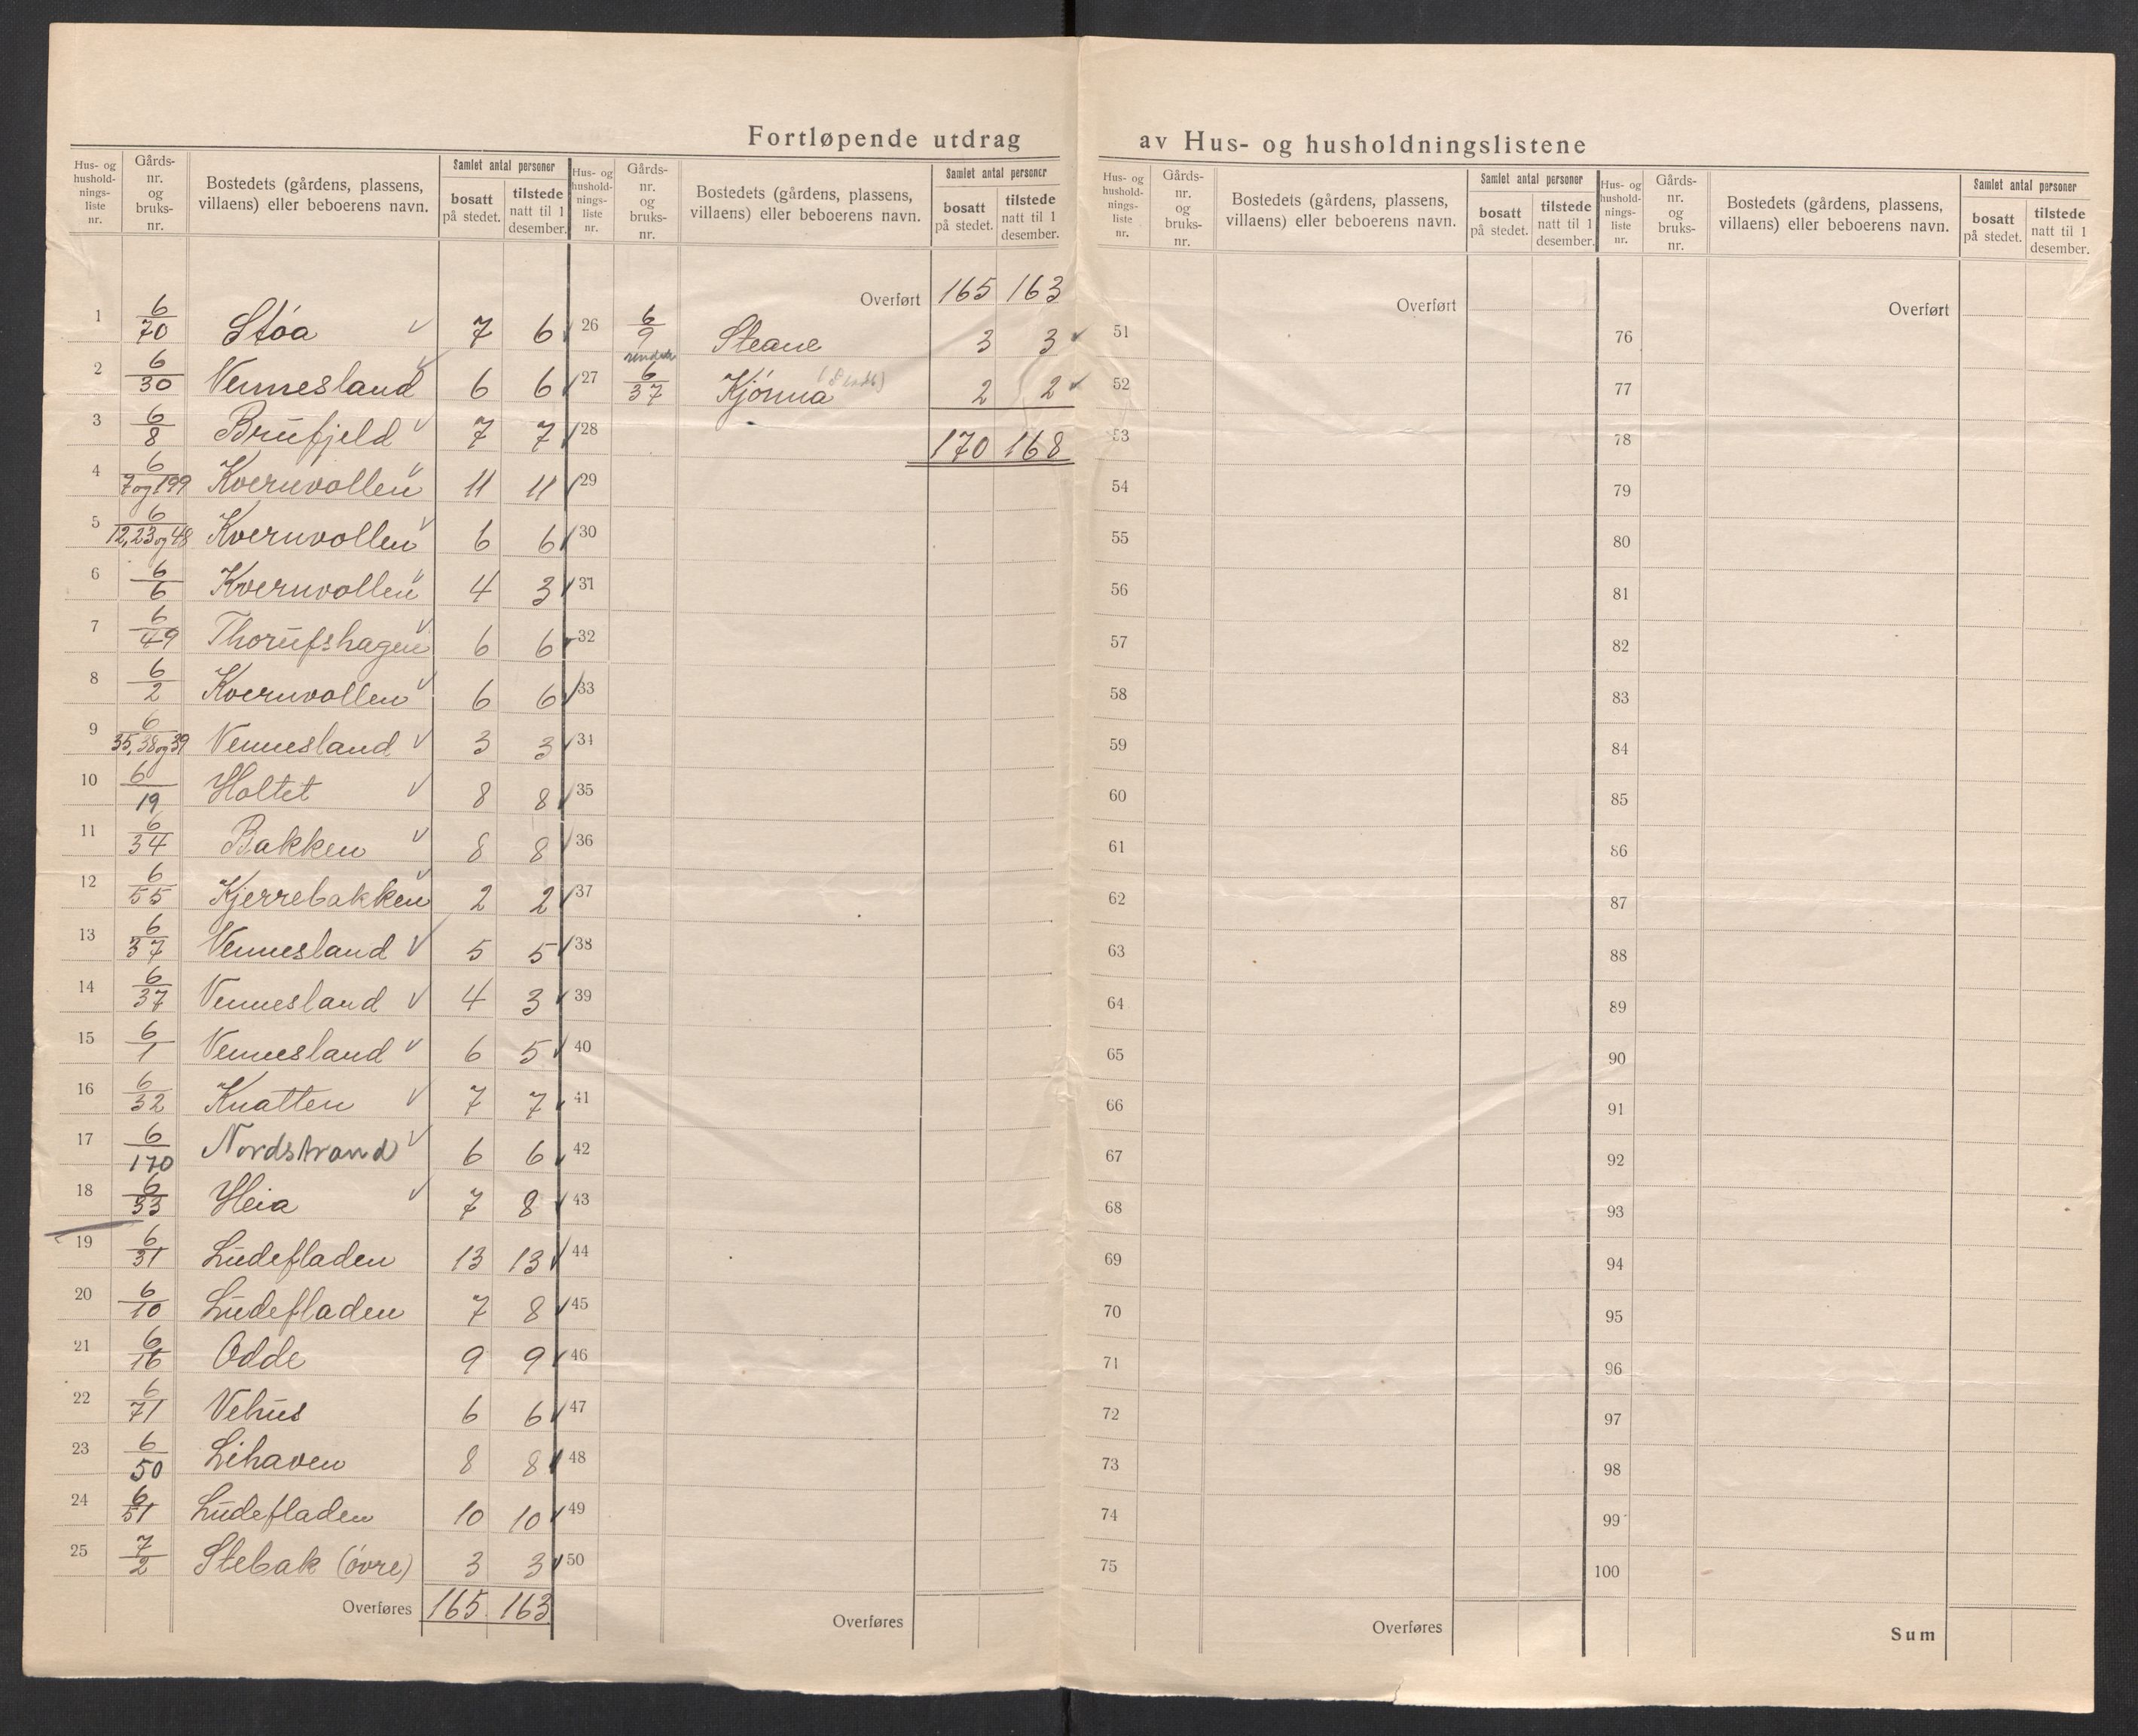 Fortløpende utdrag av Hus- og husholdningslistene
Hus- og hushold-nings-liste nr. Gårds-nr. og bruks-nr. Bostedets (gårdens, plassens, villaens) eller beboerens navn. Samlet antal personer bosatt på stedet. tilstede natt til 1 desember.
1 6/70 Støa 7 6
2 6/30 Vennesland 6 6
3 6/8 Brufjeld 7 7
4 6/7 og 199 Kvernvollen 11 11
5 6/12, 23 og 48 Kvernvollen 6 6
6 6/6 Kvernvollen 4 3
7 6/49 Thorufshagen 6 6
8 6/2 Kvernvollen 6 6
9 6/35, 38 og 39 Vennesland 3 3
10 6/19 Holtet 8 8
11 6/34 Bakken 8 8
12 6/55 Kjerrebakken 2 2
13 6/37 Vennesland 5 5
14 6/37 Vennesland 4 3
15 6/1 Vennesland 6 5
16 6/32 Knatten 7 7
17 6/170 Nordstrand 6 6
18 6/33 Heia 7 8
19 6/31 Ludefladen 13 13
20 6/10 Ludefladen 7 8
21 6/16 Odde 9 9
22 6/71 Vehus 6 6
23 6/50 Lihaven 8 8
24 6/51 Ludefladen 10 10
25 7/2 Stebak (øvre) 3 3
Overføres 165 163
Hus- og hushold-nings-liste nr. Gårds-nr. og bruks-nr. Bostedets (gårdens, plassens, villaens) eller beboerens navn. Samlet antal personer bosatt på stedet. tilstede natt til 1 desember.
Overført 165 163
26 6/9 Steane 3 3
27 6/37 Kjønna 2 2
28 170 168
29
30
31
32
33
34
35
36
37
38
39
40
41
42
43
44
45
46
47
48
49
50
Overføres
Hus- og hushold-nings-liste nr. Gårds-nr. og bruks-nr. Bostedets (gårdens, plassens, villaens) eller beboerens navn. Samlet antal personer bosatt på stedet. tilstede natt til 1 desember.
Overført
51
52
53
54
55
56
57
58
59
60
61
62
63
64
65
66
67
68
69
70
71
72
73
74
75
Overføres
Hus- og hushold-nings-liste nr. Gårds-nr. og bruks-nr. Bostedets (gårdens, plassens, villaens) eller beboerens navn. Samlet antal personer bosatt på stedet. tilstede natt til 1 desember.
Overført
76
77
78
79
80
81
82
83
84
85
86
87
88
89
90
91
92
93
94
95
96
97
98
99
100
Sum